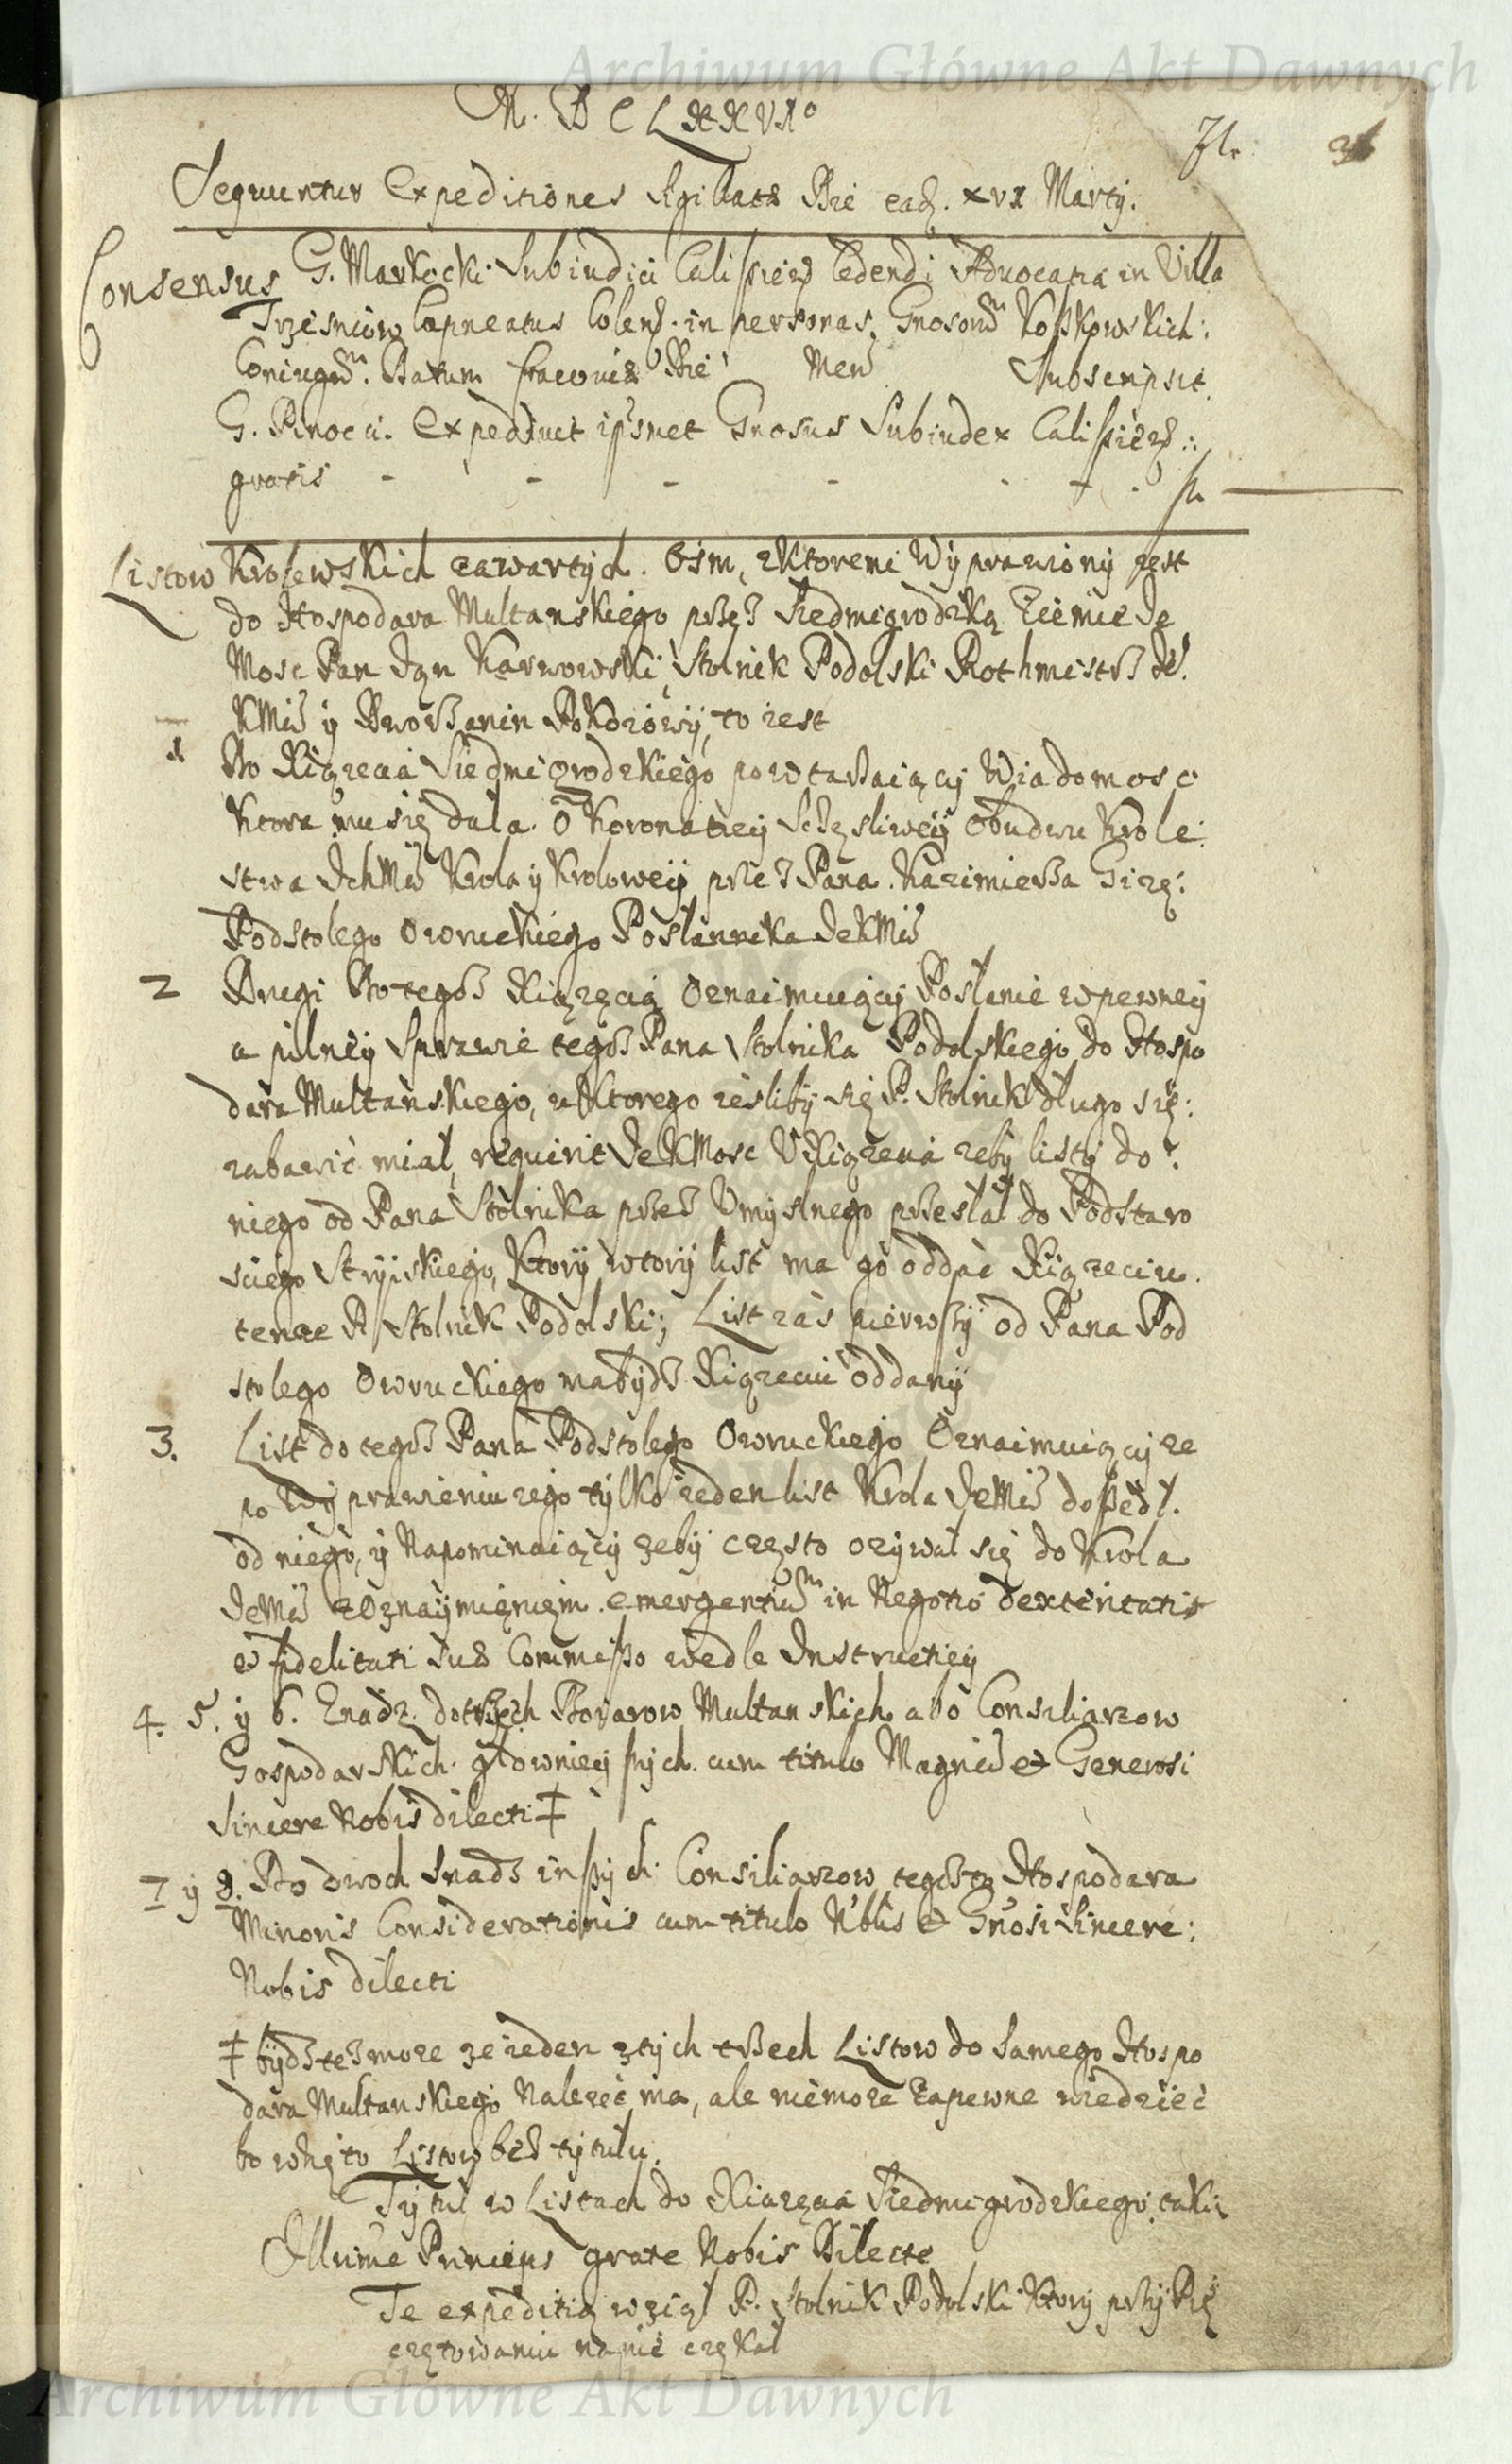 Archiwum Główne Akt Dawnych
M. D C L X X V I o
fl. 31
Sequuntur Expeditiones Sigillatae Die ead. XVI Martij.
Consensus G. Markocki Subiudici Calissien cedendi Advocatia in Villa
Trzesniow Capneatus Colen. in personas Gnosorum Koszkowskich:
Coniugum. Datum Cracoviae Die Men Subscripsit
G. Pinocci. Expedivit ipsmet Gnosus Subiudex Calissien:
gratis - - - - fl
Listow Krolewskich zawartych. Osm, z Ktoremi Wyprawiony jest
do Hospodara Multanskiego przez Siedmigrodzką Ziemie Je
Mosc Pan Jan Karwowski, Stolnik Podolski Rothmistrz Je.
KMści y Dworzanin Pokoiowy, to iest
1 Do Xiązecia Siedmigrodzkiego powtarzaiący Wiadomosc
Ktora mu się dala. O Koronatiey Sczęsliwey Obudwu Krole:
stwa Ich Mści Krola y Krolowey przez Pana. Kazimierza
Podstolego Owruckiego Poslannika Je KMści
2 Drugi Do tegosz Xiązęcia Oznaimuiący Poslanie w pewney
a pilney Sprawie tegosz Pana Stolnika Podolskiego do Hospo
dara Multanskiego, u Ktorego iesliby się P. Stolnik dlugo się:
zabawić mial, requirit Je KMosc Xiązecia zeby listy do
niego od Pana Stolnika przez Umyslnego przeslal do Podstaro
sciego Stryiskiego, Ktory wtory list ma go oddać Xiązeciu.
tenze P. Stolnik Podolski; List zas pierwszy od Pana Pod
stolego Owruckiego ma bydz Xiązeciu oddany
3. List do tegosz Pana Podstolego Owruckiego Oznaimuiący ze
po Wyprawieniu iego tylko ieden list Krola Je Mści doszedl.
od niego, y Napominaiący zeby często ozywal się do Krola
Je Mści z Oznaymieniem emergentium in Negotio dexteritatis
et fidelitati suae Commisso wedle Instructiey
4. 5. y 6. Znadz. do trzech Boiarow Multanskich abo Consiliarzow
Gospodarskich glowniejszych. cum titulo Magnici et Generosi
Sincere Nobis dilecti ‡
7 y 8. Do dwoch Snadz inszych Consiliarzow tegosz Hospodara
Minoris Considerationis cum titulo N'blis et Gnosi Sincere:
Nobis dilecti
‡ bydz tesz moze ze ieden z tych trzech Listow do Samego Hospo
dara Multanskiego Nalezec ma, ale niemoze Zapewne wiedziec
bo wzięto Listow bez tytulu.
Tytul w Listach do Xiazęcia Siedmigrodzkiego taki
Illrime Princeps grate Nobis Dilecte
Te expeditią wziąl P. Stolnik Podolski Ktory przy Pie
czętowaniu na nie czekal
Archiwum Główne Akt Dawnych